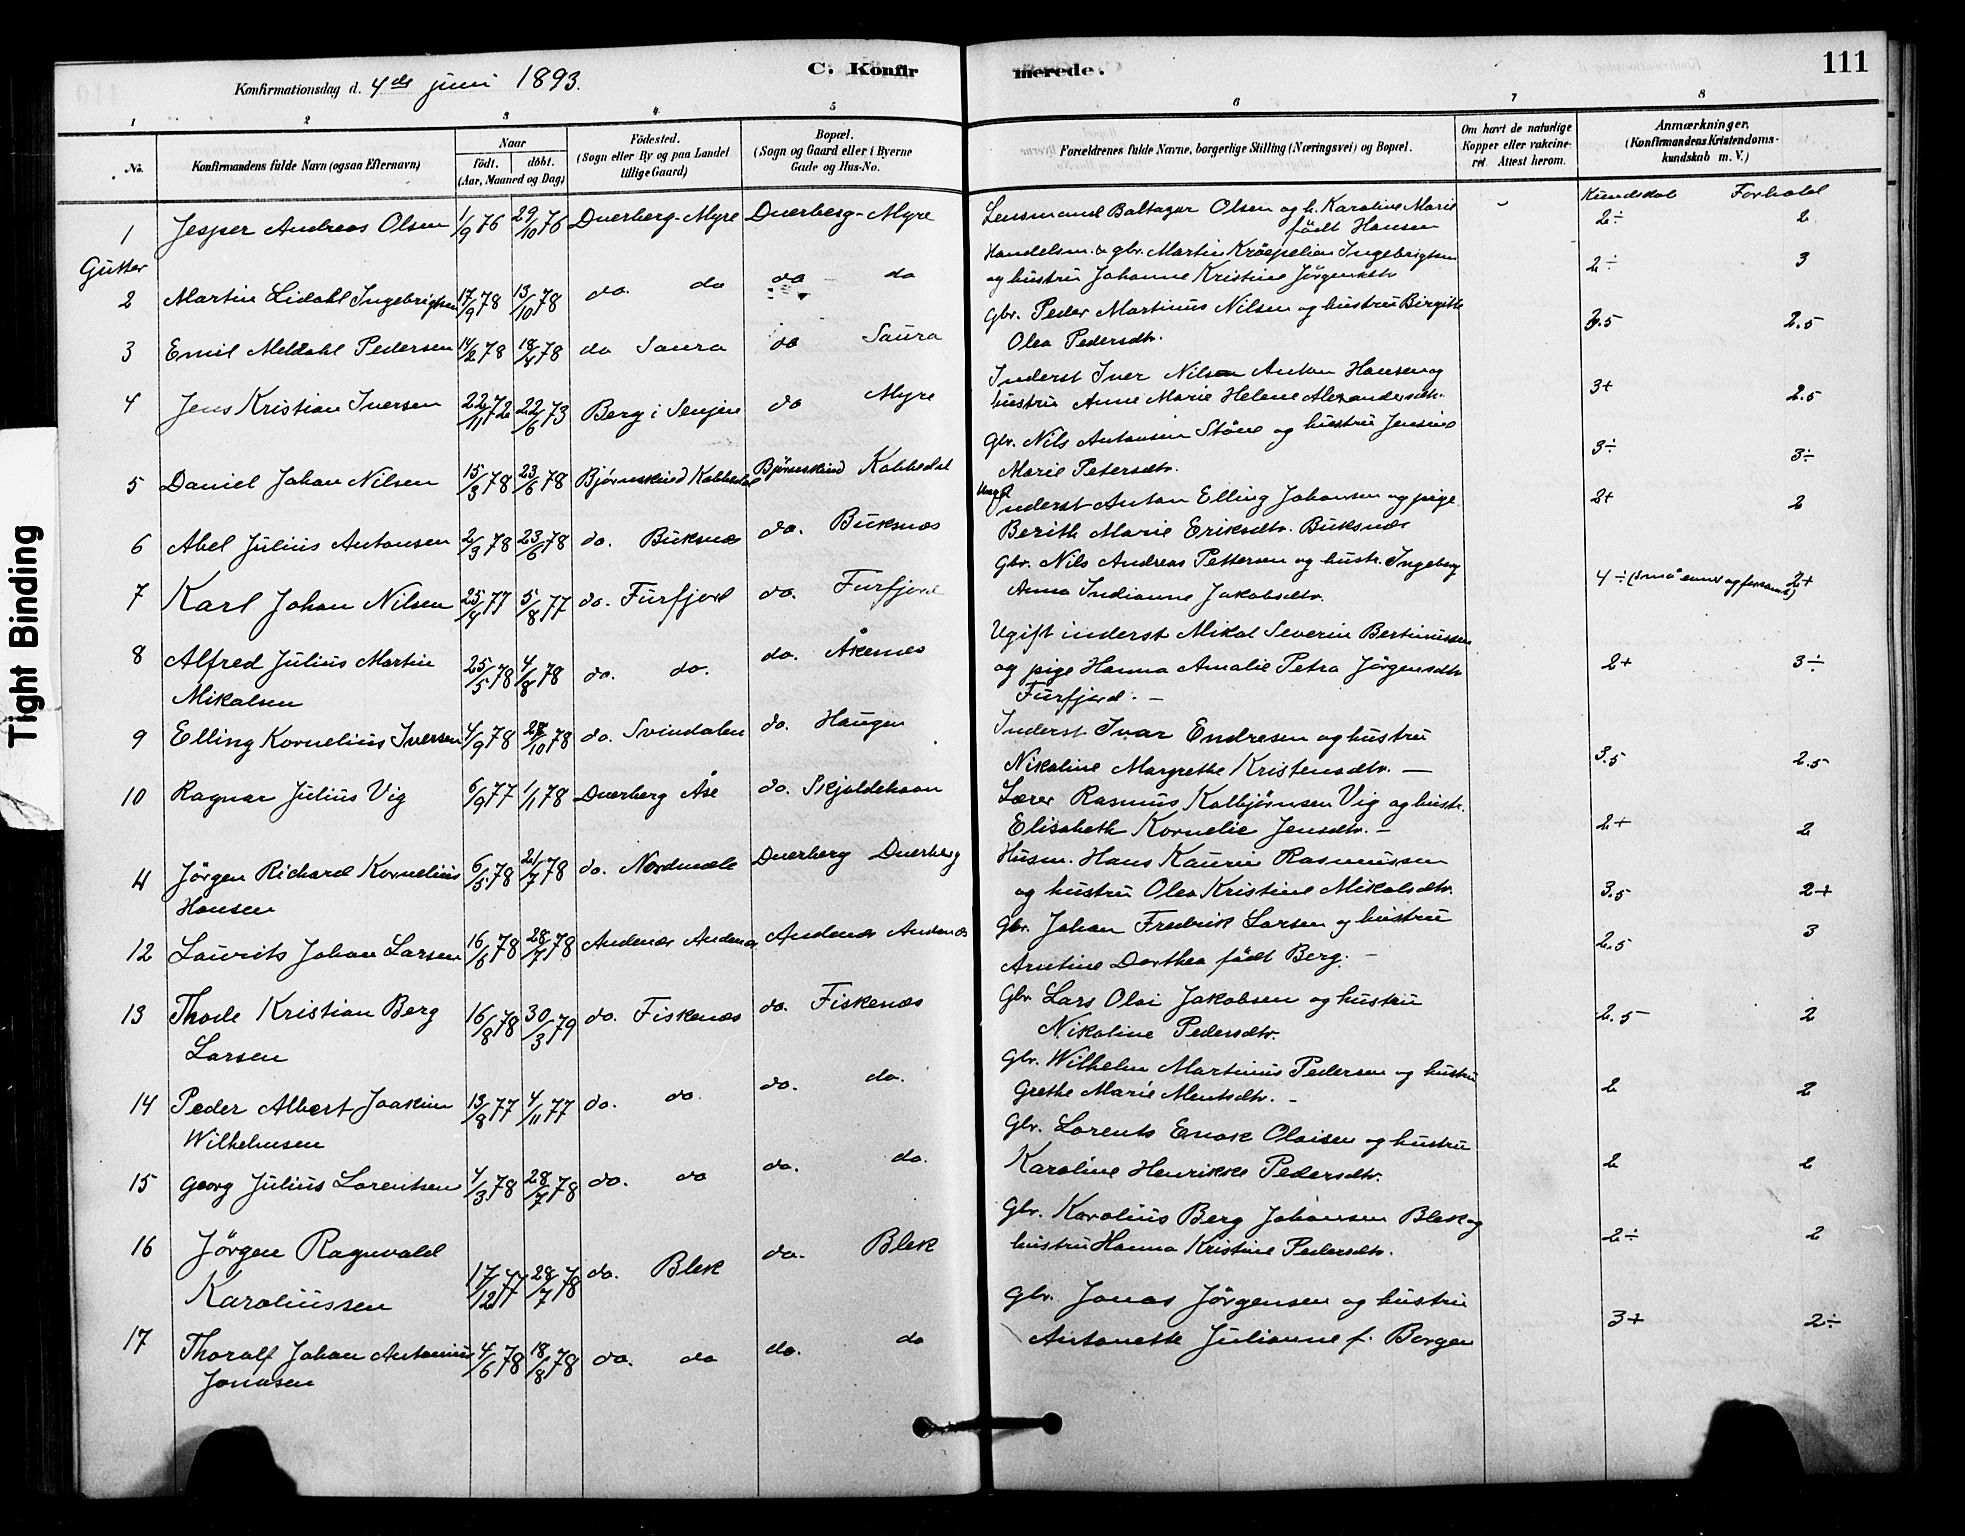 111
C. Konfirmerede.
Konfirmationsdag d. 4de juni 1893.
1 2 3 4 5 6 7 8
No.
Konfirmandens fulde Navn (ogsaa Efternavn)
Naar
födt. döbt.
(Aar, Maaned og Dag)
Födested.
(Sogn eller By og paa Landet
tillige Gaard)
Bopæl.
(Sogn og Gaard eller i Byerne
Gade og Hus-No.
Forældrenes fulde Navne, borgerlige Stilling (Næringsvei) og Bopæl.
Om havt de naturlige
Kopper eller vakcine-
ret Attest herom.
Anmærkninger.
(Konfirmandens Kristendoms-
kundskab m. V.)
Kundskab Forhold
Gutter
1 Jesper Andreas Olsen 1/9 76 29/10 76 Dverberg-Myre Dverberg-Myre Lensmand Baltazar Olsen og h. Karoline Marie 2÷ 2
födt Hansen
2 Martin Lidahl Ingebrigtsen 17/9 78 13/10 78 do. do do do Handelsm. & gbr. Martin Kröepelien Ingebrigtsen 2÷ 3
og hustru Johanne Kristine Jørgensdtr
3 Emil Meldahl Pedersen 14/2 78 18/4 78 do Saura do Saura Gbr. Peder Martinus Nilsen og hustru Birgitte 2.5 2.5
Olea Pedersdtr.
4 Jens Kristian Iversen 22/11 72 22/6 73 Berg i Senjen do Myre Inderst Iver Nilsen Anton Hansen og 3+ 2.5
hustru Anne Marie Helene Alexandersdtr.
5 Daniel Johan Nilsen 15/3 78 23/6 78 Bjørnskind Kobbedal Bjørnskind Kobbedal Gbr. Nils Antonsen Støve og hustru Jensine 3÷ 3÷
Marie Petersdtr.
6 Abel Julius Antonsen 2/3 78 23/6 78 do. Buksnæs do. Buksnæs Ungk Inderst Anton Elling Johansen og pige 2+ 2
Berith Marie Eriksdtr. Buksnæs
7 Karl Johan Nilsen 25/4 77 5/8 77 do. Furfjord do. Furfjord Gbr. Nils Andreas Pettersen og hustr. Ingeborg 4÷ (små evner og forsømt) 2+
Anna Indianne Jakobsdtr.
8 Alfred Julius Martin 25/5 78 4/8 78 do. do. do. Åkenes Ugift inderst Mikal Severin Bertinussen 2+ 3÷
Mikalsen og pige Hanna Amalie Petra Jørgensdtr
Furfjord. —
9 Elling Kornelius Iversen 4/9 78 27/10 78 do. Svindalen do. Haugen Inderst Ivar Endresen og hustru 3.5 2.5
Nikoline Margrethe Kristensdtr. —
10 Ragnar Julius Vig 6/9 77 1/1 78 Dverberg Åse do. Skjoldehavn Lærer Rasmus Kolbjørnsen Vig og hustr. 2+ 2
Elisabeth Kornelie Jensdtr. —
11 Jørgen Richard Kornelius 6/5 78 21/7 78 do. Nordmæle Dverberg Dverberg Husm. Hans Kaurin Rasmussen 3.5 2+
Hansen og hustru Olea Kristine Mikalsdtr.
12 Laurits Johan Larsen 16/6 78 28/7 78 Andenæs Andenæs Andenæs Andenæs Gbr. Johan Fredrik Larsen og hustru 2.5 3
Arntine Dorthea födt Berg. —
13 Thode Kristian Berg 16/8 78 30/3 79 do. Fiskenæs do. Fiskenæs Gbr. Lars Olai Jakobsen og hustru 2.5 2
Larsen Nikoline Pedersdtr.
14 Peder Albert Joakim 13/8 77 4/11 77 do. do do. do. Gbr. Wilhelm Martinus Pedersen og hustru 2 2
Wilhelmsen Grethe Marie Mentsdtr. —
15 Georg Julius Lorentsen 4/3 78 28/7 78 do. do do. do. Gbr. Lorents Enok Olaisen og hustru 2 2
Karoline Henrikke Pedersdtr.
16 Jørgen Ragnvald 17/12 77 28/7 78 do. Blek do. Blek Gbr. Karolius Berg Johansen Blek og 2÷ 2
Karoliussen hustru Hanna Kristine Pedersdtr.
17 Thoralf Johan Antonius 4/6 78 18/8 78 do. do do. do Gbr. Jonas Jørgensen og hustru 3+ 2÷
Jonasen Antonette Julianne f. Borgen
Tight Binding